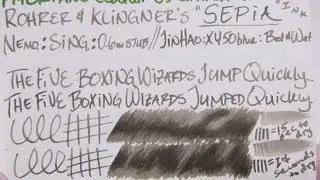 ROHRER & KLINGNER'S "SEPIA" INK
NEMO: SING: 0.6mm STUB // JINHAO: X450 blue: Broad & Wet
THE FIVE BOXING WIZARDS JUMP Quickly
THE FIVE BOXING WIZARDS JUMPED Quickly
to dry
seconds
to dry